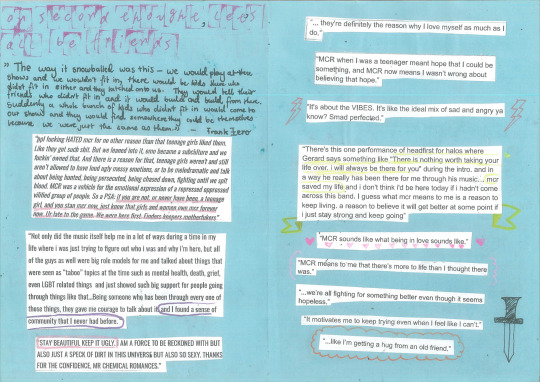 on second thought, lets
all be friends
"The way it snowballed was this - we would play at these
shows and we wouldn't fit in, there would be kids there who
didn't fit in either and they latched onto us. They would tell their
friends who didn't fit in and it would build and build from there.
Suddenly a whole bunch of kids who didn't fit in would come to
our shows and they would find somewhere they could be themselves
because we were just the same as them."
- Frank Iero
fucking HATED mcr for no other reason than that teenage girls liked them.
Like they got such shit. But we leaned into it, emo became a subculture and we
fuckin' owned that. And there is a reason for that, teenage girls weren't and still
aren't allowed to have loud ugly messy emotions, or to be melodramatic and talk
about being hunted, being persecuted, being chased down, fighting until we get
blood. MCR was a vehicle for the emotional expression of a repressed oppressed
vilified group of people. So a PSA: if you are not, or never have been, a teenage
girl, and you stan mcr now, just know that girls and women own mcr forever
now. Ur late to the game. We were here first. Finders keepers motherfukers"
"Not only did the music itself help me in a lot of ways during a time in my
life where i was just trying to figure out who i was and why i'm here, but all
of the guys as well were big role models for me and talked about things that
were seen as "taboo" topics at the time such as mental health, death, grief,
even LGBT related things and just showed such big support for people going
through things like that...Being someone who has been through every one of
those things, they gave me courage to talk about it and I found a sense of
community that I never had before.
"STAY BEAUTIFUL KEEP IT UGLY. I AM A FORCE TO BE RECKONED WITH BUT
ALSO JUST A SPECK OF DIRT IN THIS UNIVERSE BUT ALSO SO SEXY. THANKS
FOR THE CONFIDENCE, MR CHEMICAL ROMANCES."
"... they're definitely the reason why I love myself as much as I
do."
"MCR when I was a teenager meant hope that I could be
something, and MCR now means I wasn't wrong about
believing that hope."
"It's about the VIBES. It's like the ideal mix of sad and angry ya
know? Smad perfected."
"There's this one performance of headfirst for halos where
Gerard says something like "There is nothing worth taking your
life over, i will always be there for you" during the intro. and in
a way he really has been there for me through his music.... mcr
saved my life and i don't think i'd be here today if i hadn't come
across this band. I guess what mcr means to me is a reason to
keep living, a reason to believe it will get better at some point if
i just stay strong and keep going"
"MCR sounds like what being in love sounds like."
"MCR means to me that there's more to life than I thought there
was."
"...we're all fighting for something better even though it seems
hopeless."
"It motivates me to keep trying even when I feel like I can't."
"...like I'm getting a hug from an old friend."